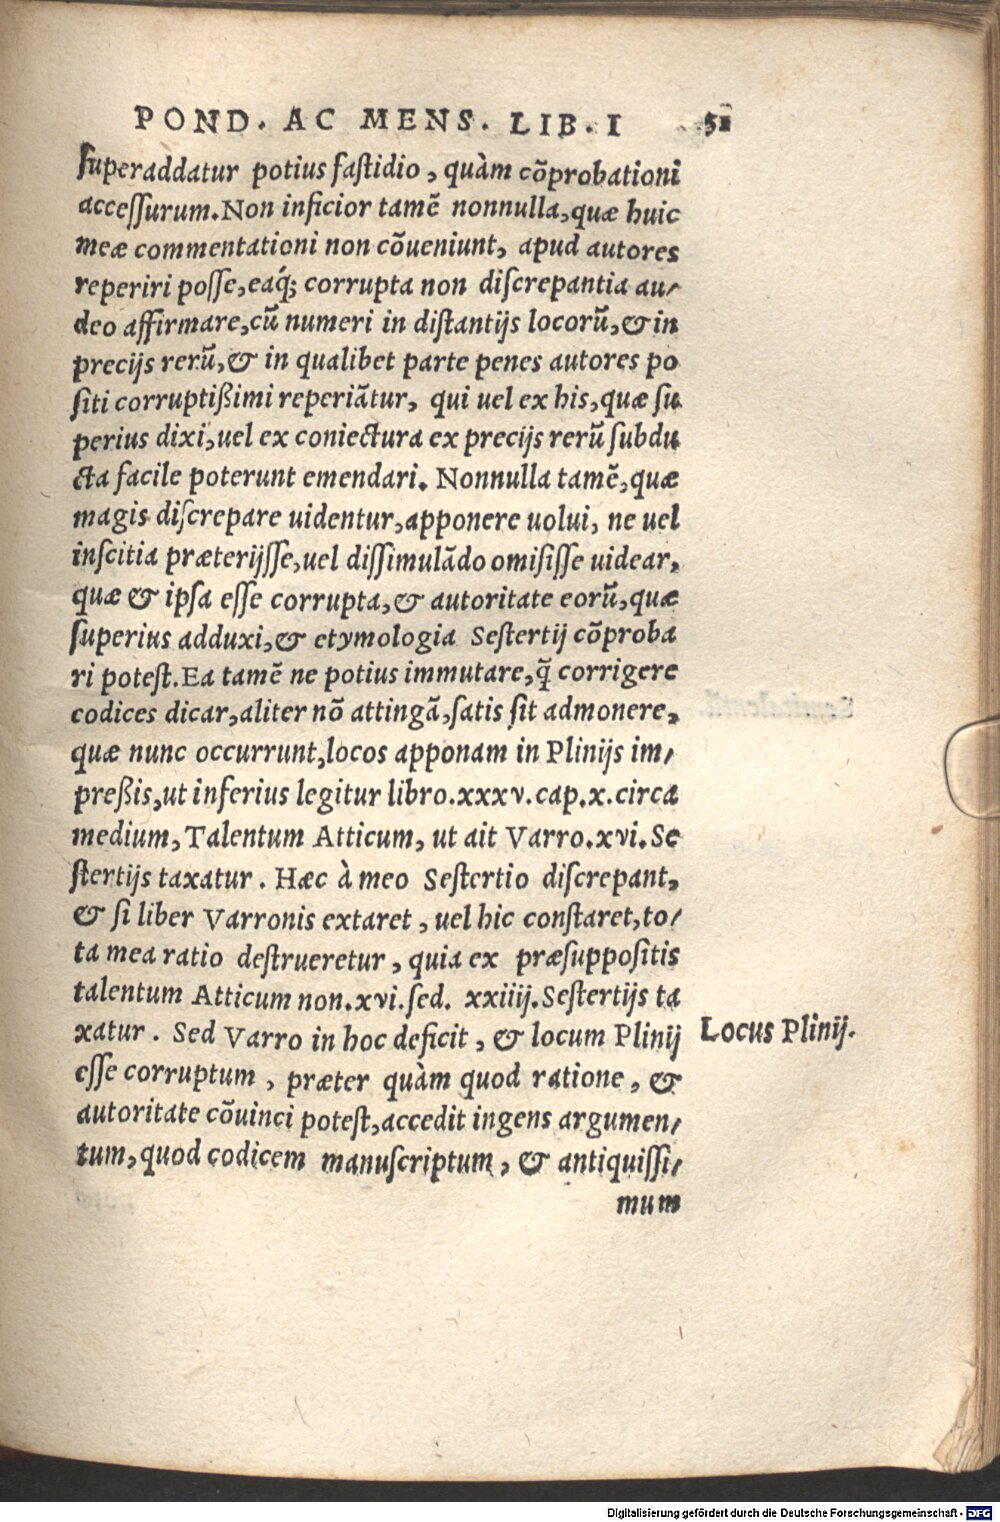 POND. AC MENS. LIB. I 51
ſuperaddatur potius faſtidio, quàm cõprobationi
acceſſurum. Non inficior tamẽ nonnulla, quæ huic
meæ commentationi non cõueniunt, apud autores
reperiri poſſe, eaq́; corrupta non diſcrepantia au-
deo affirmare, cũ numeri in diſtantijs locorũ, & in
precijs rerũ, & in qualibet parte penes autores po
ſiti corruptißimi reperiãtur, qui uel ex his, quæ ſu
perius dixi, uel ex coniectura ex precijs rerũ ſubdu
cta facile poterunt emendari. Nonnulla tamẽ, quæ
magis diſcrepare uidentur, apponere uolui, ne uel
inſcitia præterijſſe, uel diſſimulãdo omiſiſſe uidear,
quæ & ipſa eſſe corrupta, & autoritate eorũ, quæ
ſuperius adduxi, & etymologia Seſtertij cõproba
ri poteſt. Ea tamẽ ne potius immutare, q̃ corrigere
codices dicar, aliter nõ attingã, ſatis ſit admonere,
quæ nunc occurrunt, locos apponam in Plinijs im-
preßis, ut inferius legitur libro.xxxv.cap.x.circa
medium, Talentum Atticum, ut ait Varro.xvi.Se
ſtertijs taxatur. Hæc à meo Seſtertio diſcrepant,
& ſi liber Varronis extaret, uel hic conſtaret, to-
ta mea ratio deſtrueretur, quia ex præſuppoſitis
talentum Atticum non.xvi.ſed. xxiiij. Seſtertijs ta
xatur. Sed Varro in hoc deficit, & locum Plinij
Locus Plinij.
eſſe corruptum, præter quàm quod ratione, &
autoritate cõuinci poteſt, accedit ingens argumen-
tum, quod codicem manuſcriptum, & antiquiſſi-
mum
Digitalisierung gefördert durch die Deutsche Forschungsgemeinschaft - DFG